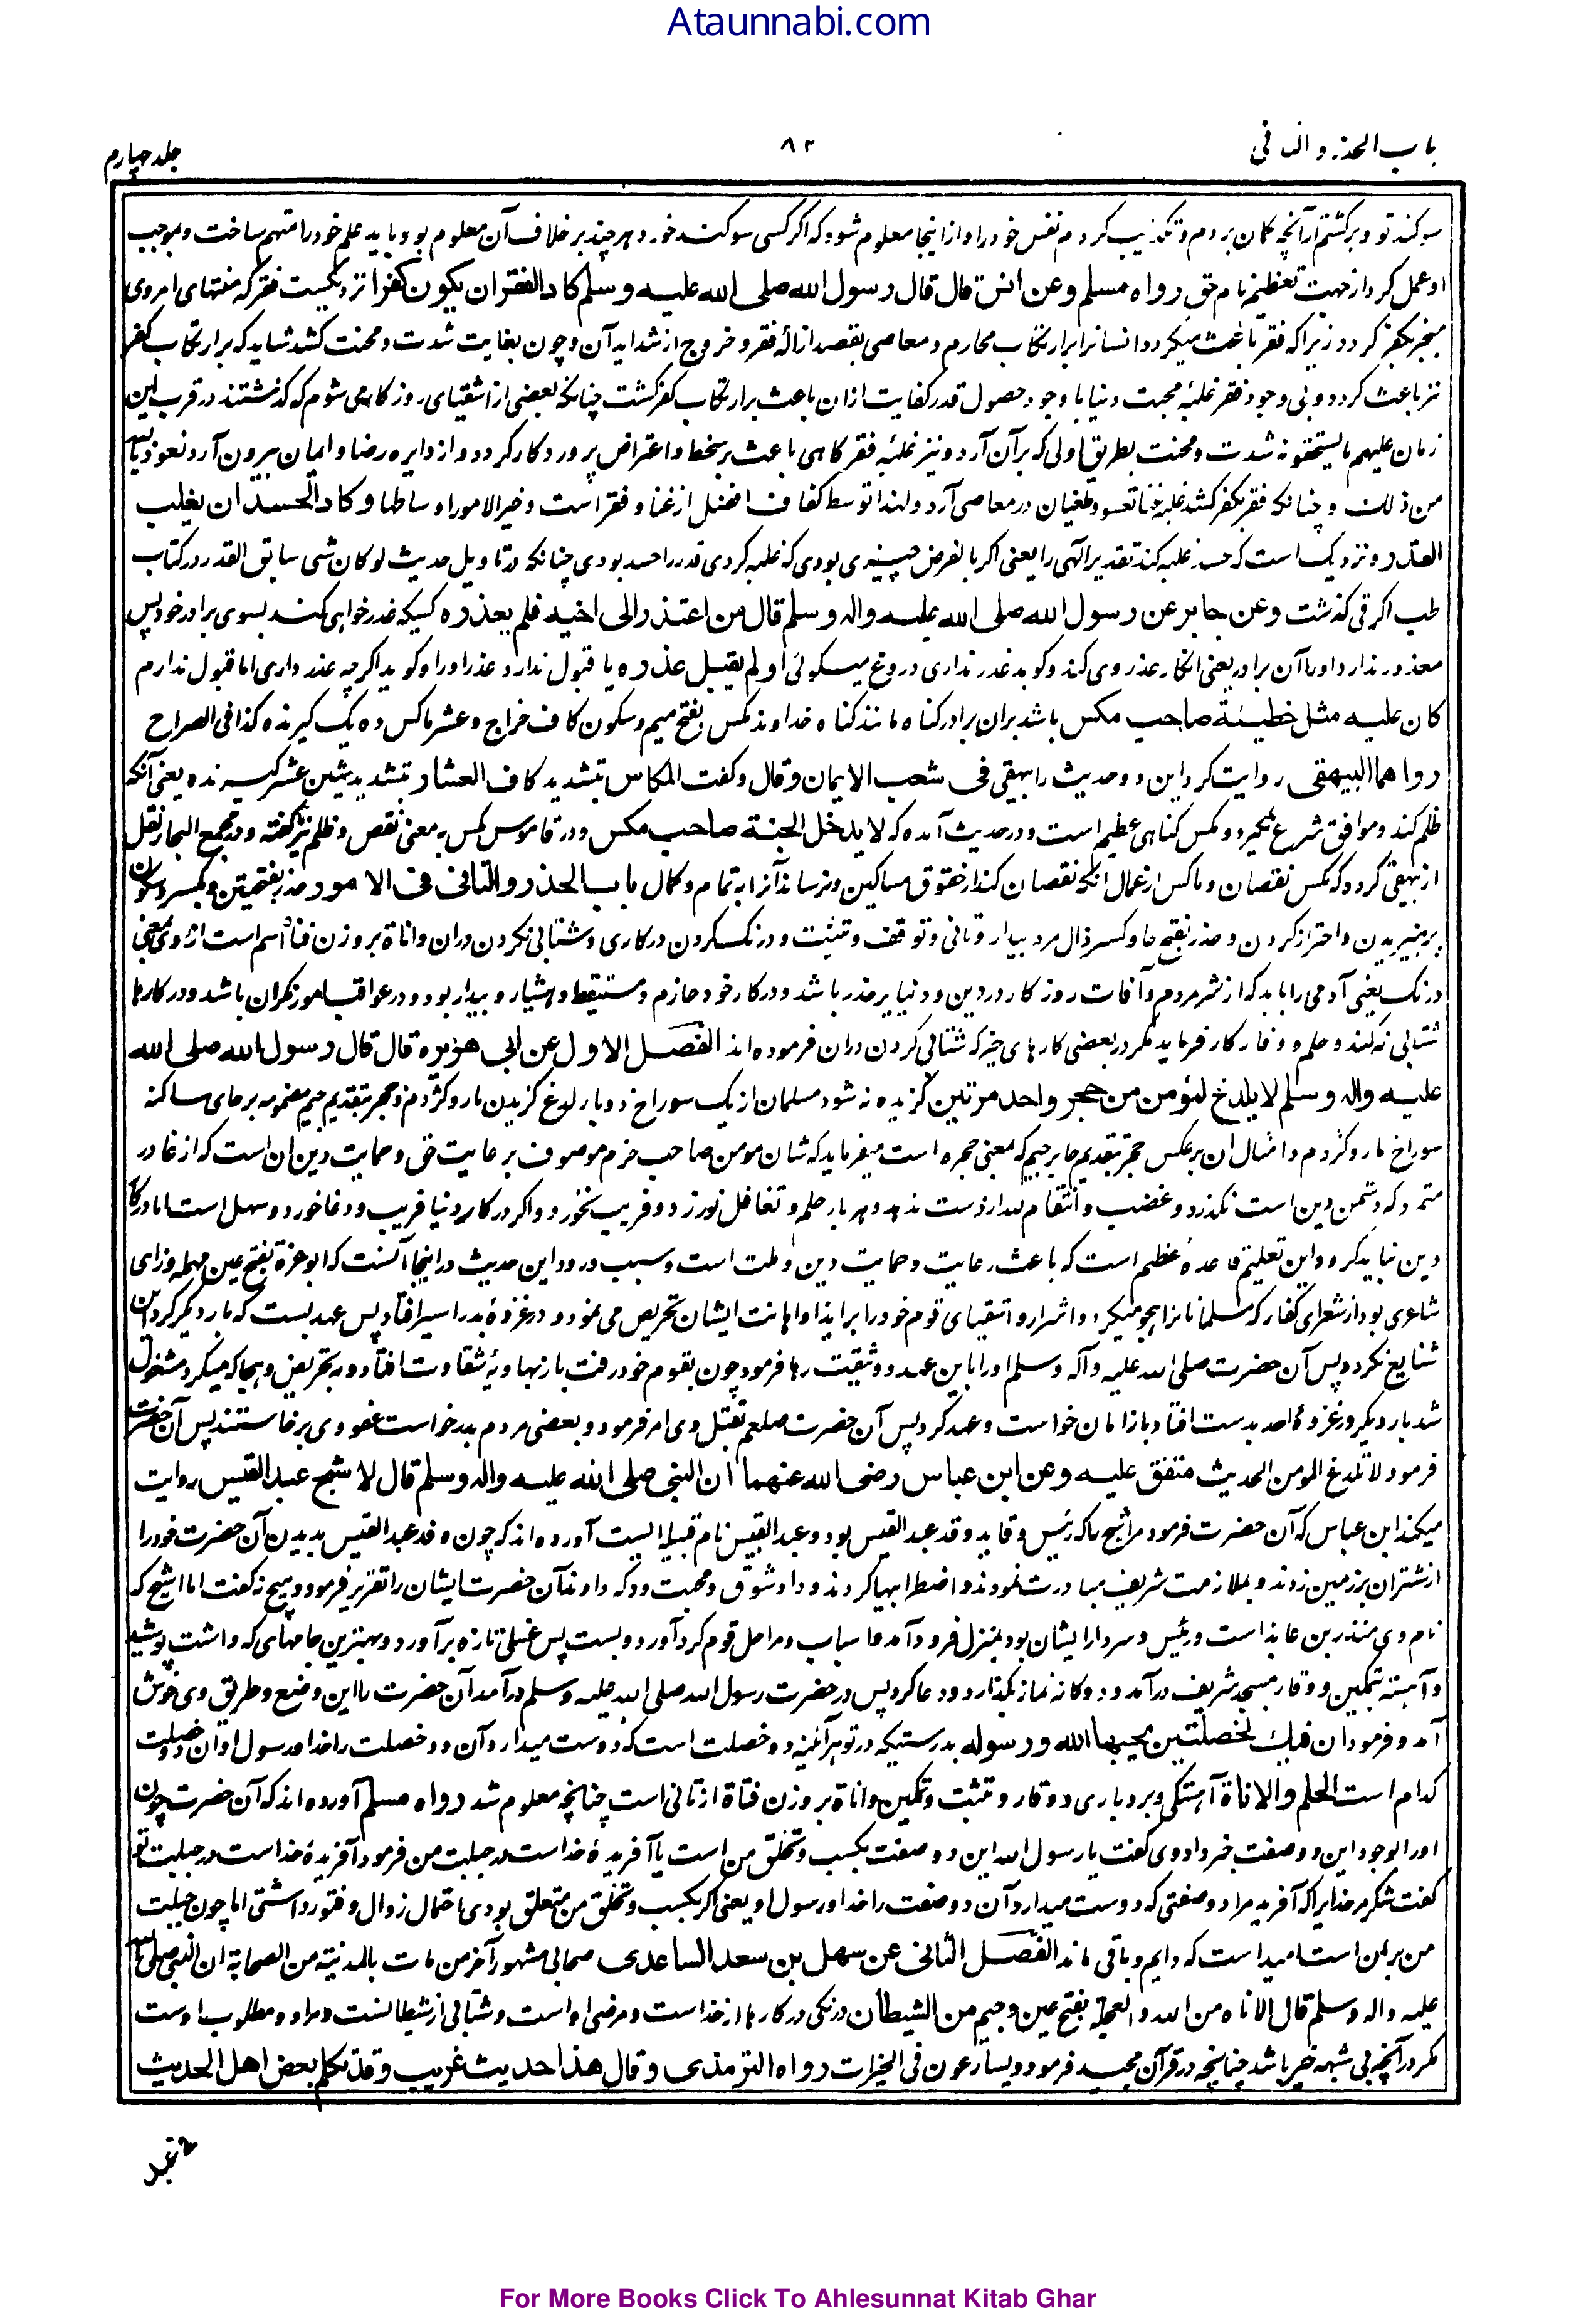 Ataunnabi.com
باب الحذر والتانی
۸۲
جلد چهارم
سوکند تو و برکشتم ازآنچه کمان بردم و تکذیب کردم نفس خود را و ازاینجا معلوم شود که اکر کسی سوکند خورد هر چند بر خلاف آن معلوم بود باید علم خود را متهم ساخت و بموجب
او عمل کرد از جهت تعظیم نام حق رواه مسلم وعن انس قال قال رسول الله صلی الله علیه وسلم کاد الفقر ان یکون کفرا نزدیکست فقر که منتهای امر وی
منجر بکفر کردد زیراکه فقر باعث میکردد انسانرا برارتکاب محارم و معاصی بقصد ازالهٔ فقر و خروج از شداید آن و چون بغایت شدت و محنت کشد شاید که برارتکاب کفر
نیز باعث کردد و بی وجود فقر غلبهٔ محبت دنیا با وجود حصول قدر کفایت ازان باعث برارتکاب کفر کشت چنانکه بعضی از اشقیای روزکار می شوم که کذشتند در قرب این
زمان علیهم ما یستحقونه شدت و محنت بطریق اولی که برآن آرد و نیز غلبهٔ فقر کاهی باعث بر سخط و اعتراض پروردکار کردد و از دایره رضا و ایمان بیرون آرد نعوذ بالله
من ذلک و چنانکه فقر بکفر کشد غلبهٔ غنا تعسر و طغیان در معاصی آرد و لهذا توسط کفاف افضل از غنا و فقر است و خیر الامور اوساطها وکاد الحسد ان یغلب
القدر و نزدیک است که حسد غلبه کند تقدیر الهی را یعنی اکر بالفرض چیزی بودی که غلبه کردی قدر را حسد بودی چنانکه در تاویل حدیث لوکان شی سابق القدر در کتاب
طب الرقی کذشت وعن جابر عن رسول الله صلی الله علیه واله وسلم قال من اعتذر الی اخیه فلم یعذره کسیکه عذر خواهی کند بسوی برادر خود پس
معذور ندارد او را آن برادر یعنی انکار عذر وی کند و کوید عذر نداری دروغ میکوئی او لم یقبل عذره یا قبول ندارد عذر اورا و کوید اکرچه عذر داری اما قبول ندارم
کان علیه مثل خطیئة صاحب مکس باشد بران برادر کناه مانند کناه خداوند مکس بفتح میم و سکون کاف خراج و عشر ماکس ده یک کیرنده کذا فی الصراح
رواهما البیهقی روایت کرد این دو حدیث را بیهقی فی شعب الایمان وقال و کفت المکاس بتشدید کاف العشار بتشدید شین عشر کیرنده یعنی آنکه
ظلم کند و موافق شرع نکیرد و مکس کناهی عظیم است و در حدیث آمده که لا یدخل الجنة صاحب مکس و در قاموس مکس به معنی نقص و ظلم نیز کفته و در مجمع البحار نقل
از بیهقی کرده که مکس نقصان و ماکس از عمال آنکه نقصان کند از حقوق مساکین و نرساند آنرا به تمام و کمال باب الحذر والتانی فی الامور حذر بفتحتین و بکسر و سکون
پرهیزیدن و احتراز کردن و حذر بفتح حا و کسر ذال مرد بیدار و تانی و توقف و تثبت و درنک کردن در کاری و شتابی نکردن دران و اناة بر وزن قناة اسم است از وی بمعنی
درنک یعنی آدمی را باید که از شر مردم و آفات روزکار در دین و دنیا بر حذر باشد و در کار خود حازم و متیقظ و هشیار و بیدار بود و در عواقب امور نکران باشد و در کارها
شتابی نه کند و حلم و وقار کار فرماید مکر در بعضی کارهای خیر که شتابی کردن دران فرموده اند الفصل الاول عن ابی هریرة قال قال رسول الله صلی الله
علیه واله وسلم لا یلدغ المؤمن من جحر واحد مرتین کزیده نه شود مسلمان از یک سوراخ دو بار لدغ کزیدن مار و کژدم و جحر بتقدیم جیم مضمومه بر حای ساکنه
سوراخ مار و کژدم و امثال آن برعکس حجر بتقدیم حا بر جیم که بمعنی حجره است میفرماید که شان مومن صاحب حزم موصوف برعایت حق و حمایت دین ان است که از غادر
متمرد که دشمن دین است نکذرد و غضب و انتقام لله از دست ندهد و هر بار حلم و تغافل نورزد و فریب نخورد و اکر در کار دنیا فریب و دغا خورد سهل است اما در کار
دین نباید کرد و این تعلیم قاعدهٔ عظیم است که باعث رعایت و حمایت دین و ملت است و سبب ورود این حدیث در اینجا آنست که ابو عزة بفتح عین مهمله و زای
شاعری بود از شعرای کفار که مسلمانانرا هجو میکرد و اشرار و اشقیای قوم خود را بر ایذا و اهانت ایشان تحریص می نمود و در غزوهٔ بدر اسیر افتاد پس عهد بست که بار دیکر کرد این
شنایع نکردد پس آن حضرت صلی الله علیه وآله وسلم او را با این عهد و وثیقت رها فرمود چون بقوم خود رفت باز بهاویهٔ شقاوت افتاد و به تحریص و هجا که میکرد مشغول
شد بار دیکر در غزوهٔ احد بدست افتاد باز امان خواست و عهد کرد پس آن حضرت صلعم بقتل وی امر فرمود و بعضی مردم بدرخواست عفو وی برخاستند پس آن حضرت
فرمود لا یلدغ المومن الحدیث متفق علیه وعن ابن عباس رضی الله عنهما ان النبی صلی الله علیه واله وسلم قال لاشج عبد القیس روایت
میکند ابن عباس که آن حضرت فرمود مر اشج را که رئیس و قاید وفد عبد القیس بود و عبد القیس نام قبیله ایست آورده اند که چون وفد عبد القیس بدیدن آن حضرت خود را
از شتران بر زمین زدند و بملازمت شریف مبادرت نمودند و اضطرابها کردند و داد شوق و محبت ودکه دادند آن حضرت ایشان را تقریر فرمود و هیچ نکفت اما اشج که
نام وی منذر بن عایذ است و رئیس و سردار ایشان بود بمنزل فرود آمد و اسباب و مراحل قوم کرد آورد و بست پس غسلی تازه برآورد و بهترین جامهای که داشت پوشید
و آهسته بتمکین و وقار مسجد شریف درآمد و دوکانه نماز بکذارد و دعا کرد پس در حضرت رسول الله صلی الله علیه وسلم درآمد آن حضرت را این وضع و طریق وی خوش
آمد و فرمود ان فیک لخصلتین یحبهما الله ورسوله بدرستیکه در تو هرآئینه دو خصلت است که دوست میدارد آن دو خصلت را خدا و رسول او آن دو خصلت
کدام است الحلم والاناة آهستکی و بردباری و وقار و تثبت و تمکین و اناة بر وزن قناة از تانی است چنانچه معلوم شد رواه مسلم آورده اند که آن حضرت چون
او را بوجود این دو صفت خبر داد وی کفت یا رسول الله این دو صفت بکسب و تخلق من است یا آفریدهٔ خداست در جبلت من فرمود آفریدهٔ خداست در جبلت تو
کفت شکر مر خدایرا که آفرید مرا دو صفتی که دوست میدارد آن دو صفت را خدا و رسول او یعنی اکر بکسب و تخلق من متعلق بودی احتمال زوال و فتور داشتی اما چون جبلت
من بر آن است امید است که دایم و باقی ماند الفصل الثانی عن سهل بن سعد الساعدی صحابی مشهور آخر من مات بالمدینة من الصحابة ان النبی صلی الله
علیه واله وسلم قال الاناة من الله والعجلة بفتح عین و جیم من الشیطان درنکی در کارها از خداست و مرضی او است و شتابی از شیطانست و مراد و مطلوب اوست
مکر در آنچه بی شبهه خیر باشد چنانچه در قرآن مجید فرمود ویسارعون فی الخیرات رواه الترمذی وقال هذا حدیث غریب وقد تکلم بعض اهل الحدیث
For More Books Click To Ahlesunnat Kitab Ghar